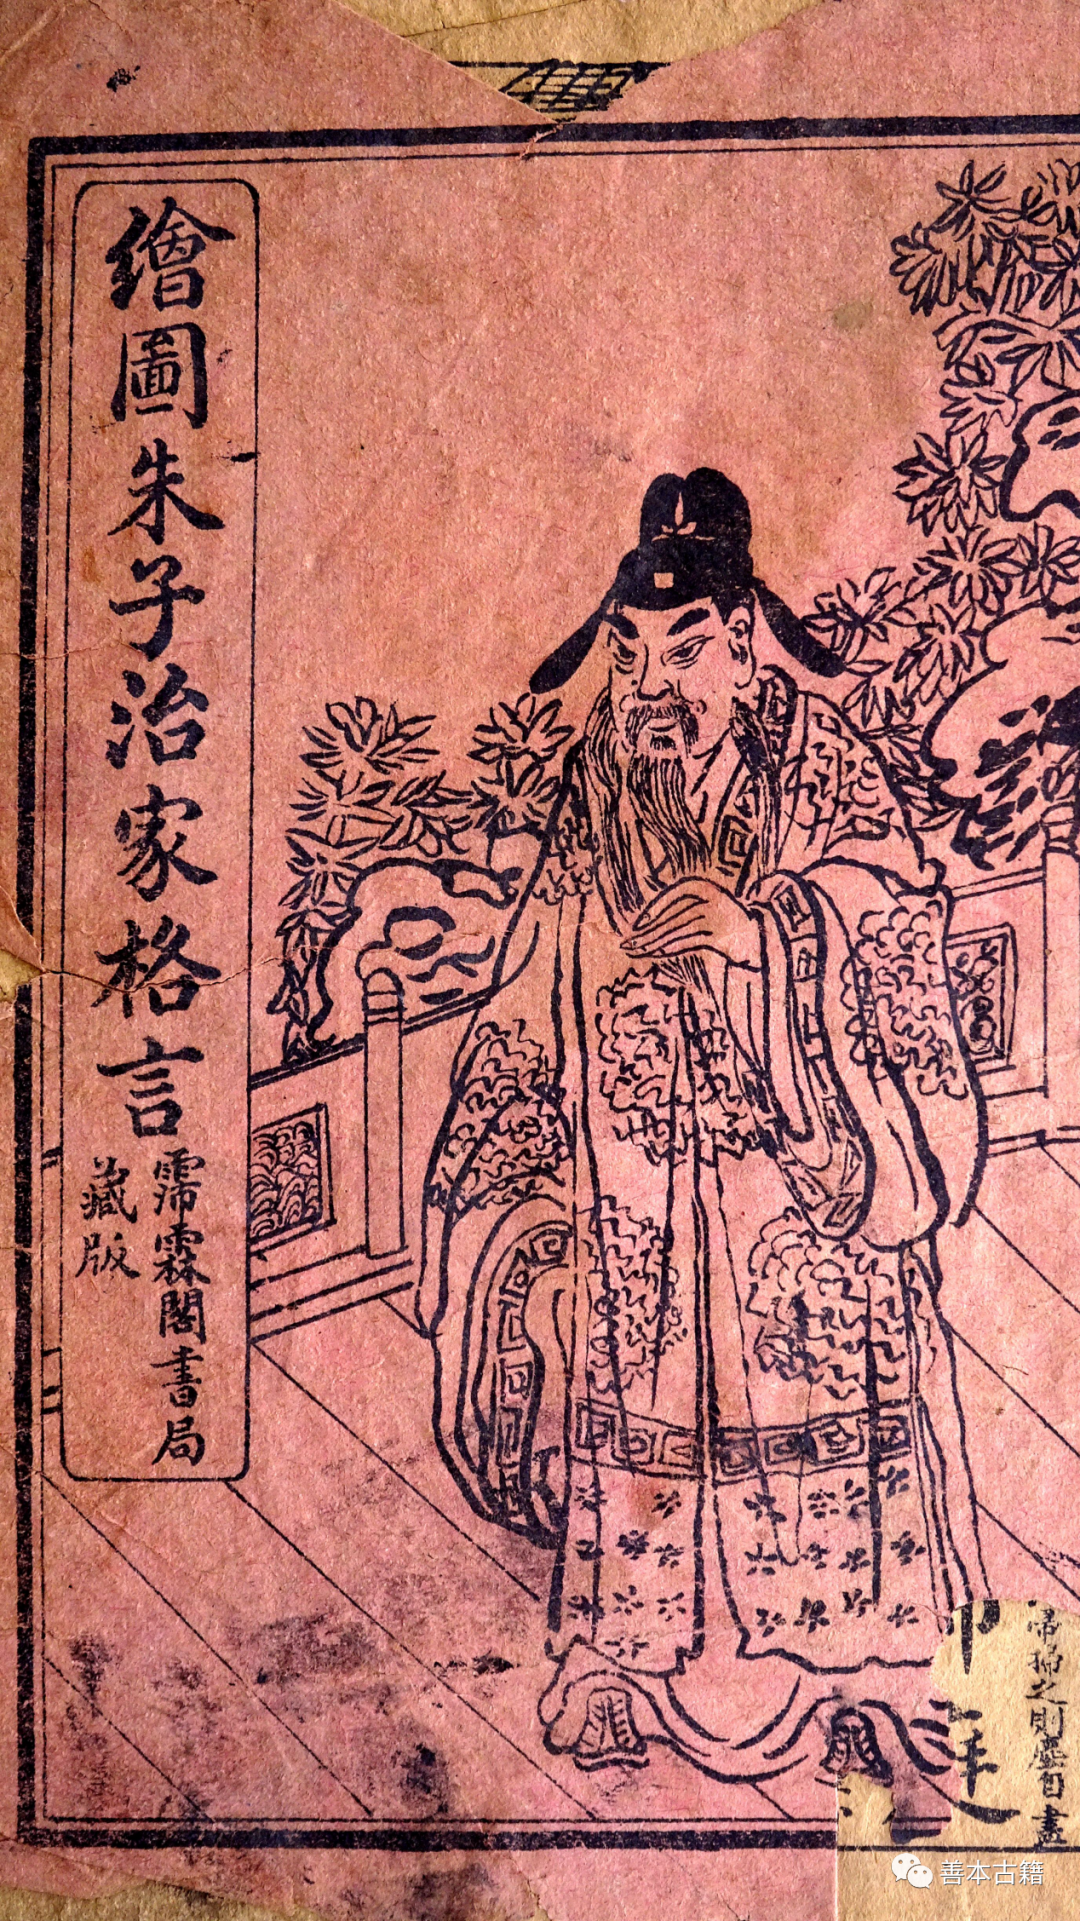 繪圖朱子治家格言
霈霖閣書局
藏版
帚掃之則塵自盡
善本古籍